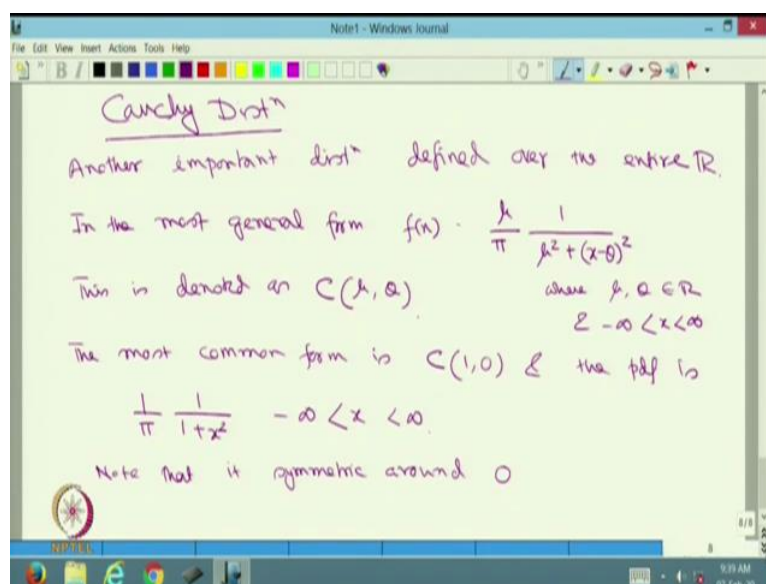 Note1 - Windows Journal
File Edit View Insert Actions Tools Help
B I
Cauchy Distⁿ
Another important distⁿ defined over the entire R.
In the most general form f(x) = μ/π 1/(μ² + (x-θ)²)
This is denoted as C(μ, θ). where μ, θ ∈ R
& -∞ < x < ∞
The most common form is C(1,0) & the pdf is
1/π 1/(1+x²) -∞ < x < ∞.
Note that it symmetric around 0
NPTEL
8/8
8
9:39 AM